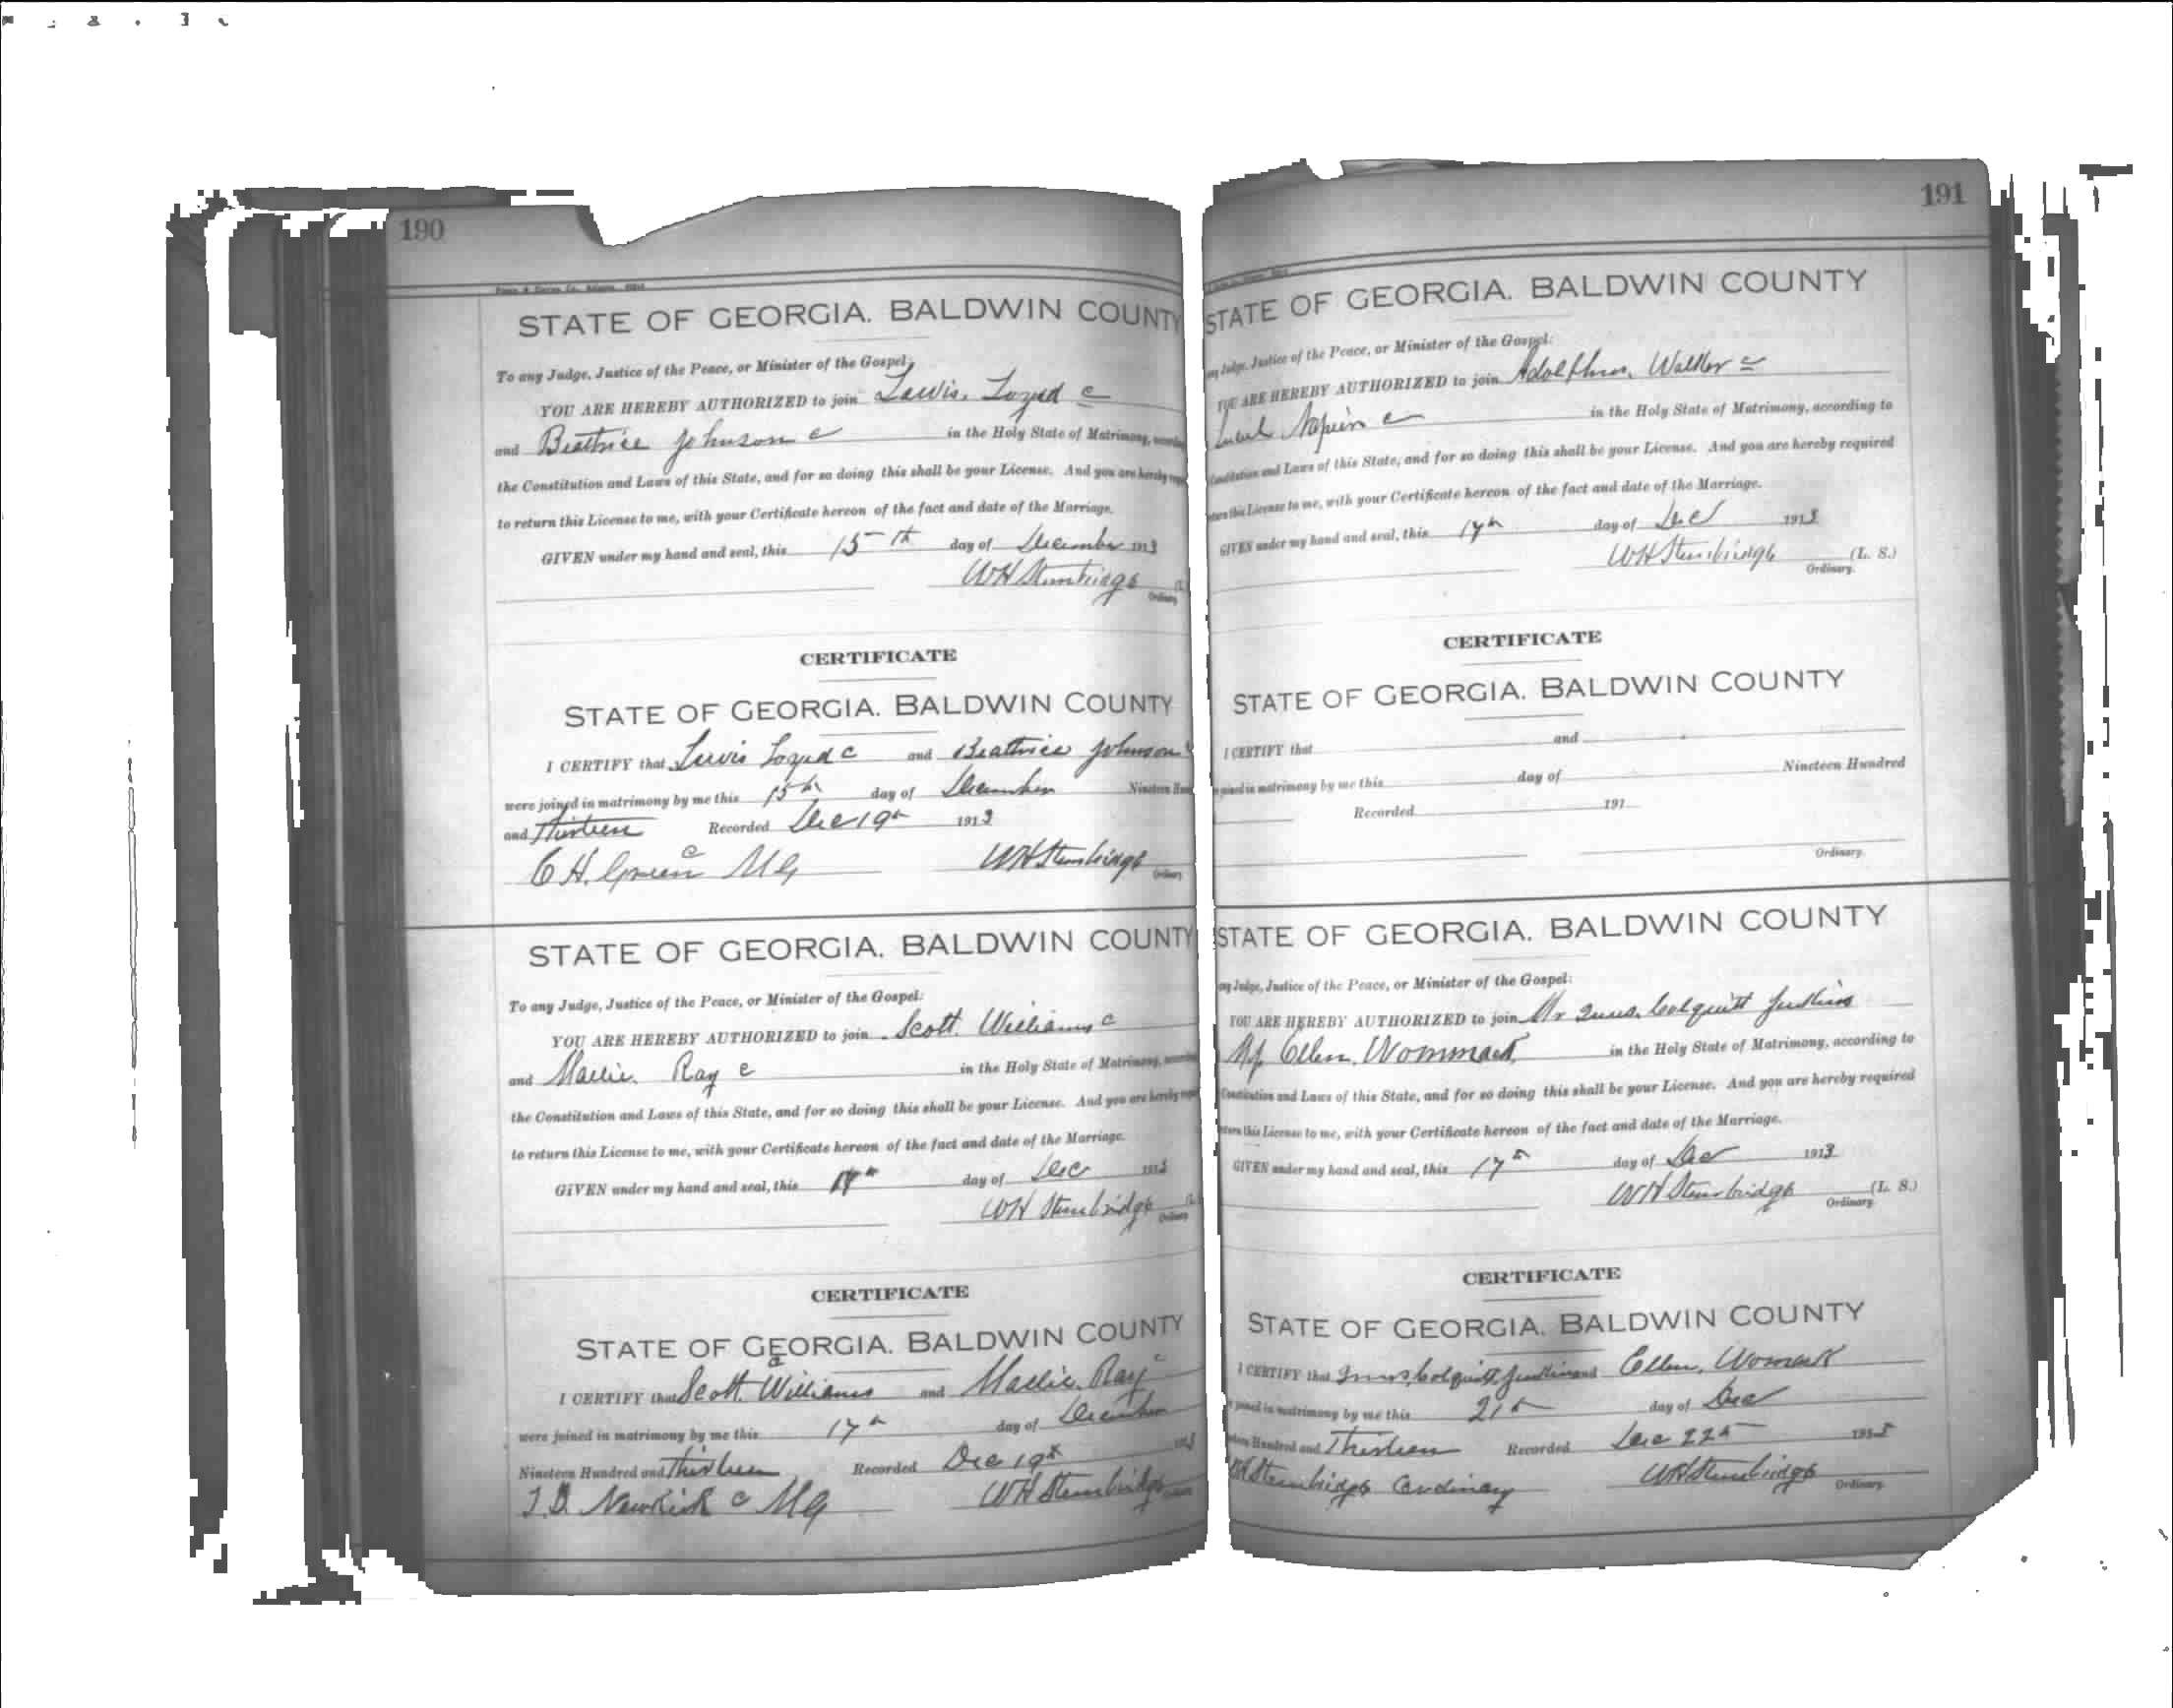 190
STATE OF GEORGIA. BALDWIN COUNTY
To any Judge, Justice of the Peace, or Minister of the Gospel;
YOU ARE HEREBY AUTHORIZED to join Lewis. Lozed c
and Beatrice Johnson c in the Holy State of Matrimony,
the Constitution and Laws of this State, and for so doing this shall be your License. And you are hereby
to return this License to me, with your Certificate hereon of the fact and date of the Marriage.
GIVEN under my hand and seal, this 15th day of December 1913
WH Stembridge
Ordinary
CERTIFICATE
STATE OF GEORGIA. BALDWIN COUNTY
I CERTIFY that Lewis Lozed c and Beatrice Johnson
were joined in matrimony by me this 15th day of December Nineteen
and Thirteen Recorded Dec 19th 1913
C H. Green c MG WH Stembridge
Ordinary
STATE OF GEORGIA. BALDWIN COUNTY
To any Judge, Justice of the Peace, or Minister of the Gospel:
YOU ARE HEREBY AUTHORIZED to join Scott. Williams c
and Ray c in the Holy State of Matrimony,
the Constitution and Laws of this State, and for so doing this shall be your License. And you are hereby
to return this License to me, with your Certificate hereon of the fact and date of the Marriage.
GIVEN under my hand and seal, this day of Dec 1913
WH Stembridge
Ordinary
CERTIFICATE
STATE OF GEORGIA. BALDWIN COUNTY
I CERTIFY that Scott. Williams c and Ray c
were joined in matrimony by me this 17th day of December
Nineteen Hundred and Thirteen Recorded Dec 19th 1913
Newkirk c MG WH Stembridge
Ordinary
191
STATE OF GEORGIA. BALDWIN COUNTY
any Judge, Justice of the Peace, or Minister of the Gospel:
YOU ARE HEREBY AUTHORIZED to join Adolphus. Walker c
Napier c in the Holy State of Matrimony, according to
Constitution and Laws of this State, and for so doing this shall be your License. And you are hereby required
return this License to me, with your Certificate hereon of the fact and date of the Marriage.
GIVEN under my hand and seal, this 17th day of Dec 1913
WH Stembridge (L. S.)
Ordinary.
CERTIFICATE
STATE OF GEORGIA. BALDWIN COUNTY
I CERTIFY that and
joined in matrimony by me this day of Nineteen Hundred
Recorded 191
Ordinary.
STATE OF GEORGIA. BALDWIN COUNTY
any Judge, Justice of the Peace, or Minister of the Gospel:
YOU ARE HEREBY AUTHORIZED to join Mr Colquitt
Ellen. Wommack in the Holy State of Matrimony, according to
Constitution and Laws of this State, and for so doing this shall be your License. And you are hereby required
return this License to me, with your Certificate hereon of the fact and date of the Marriage.
GIVEN under my hand and seal, this 17th day of Dec 1913
WH Stembridge (L. S.)
Ordinary
CERTIFICATE
STATE OF GEORGIA. BALDWIN COUNTY
I CERTIFY that Colquitt and Ellen. Womack
joined in matrimony by me this 21st day of Dec
Hundred and Thirteen Recorded Dec 22
WH Stembridge Ordinary WH Stembridge
Ordinary